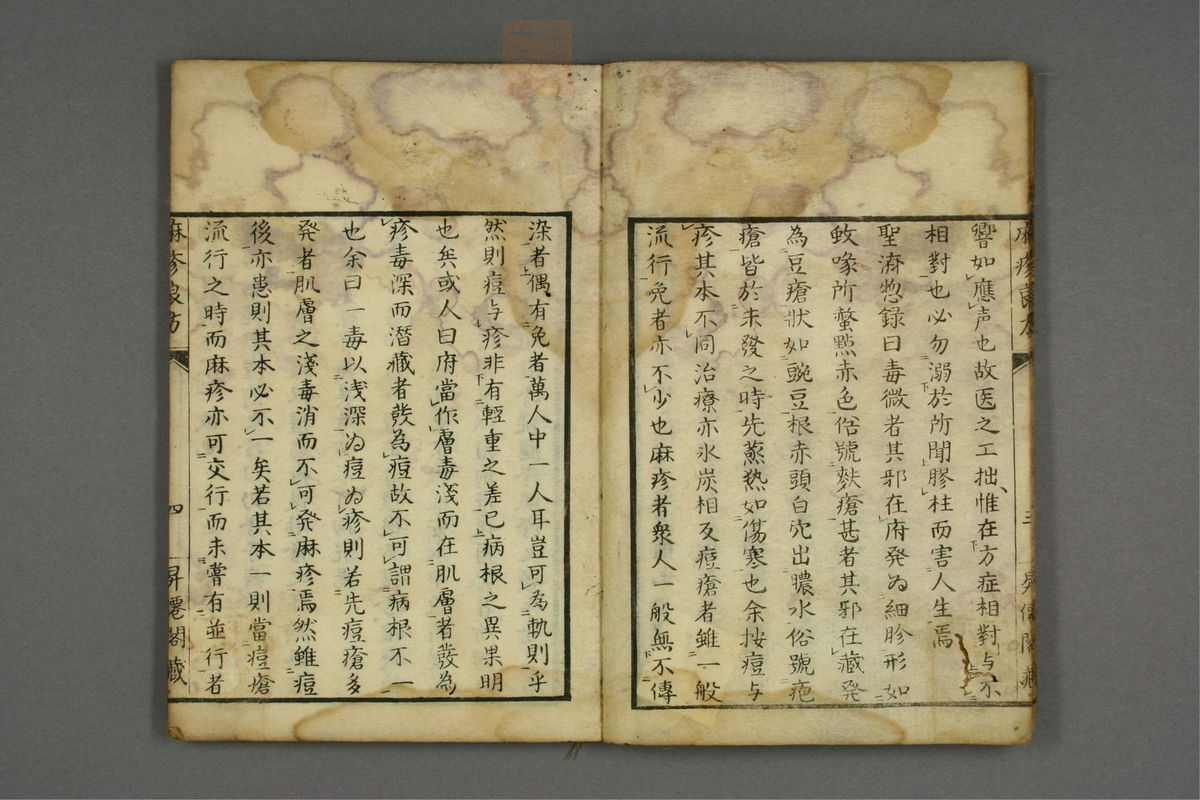 響如應声也故医之工拙惟在方症相對与不
相對也必勿溺於所聞膠柱而害人生焉
聖濟惣録曰毒微者其邪在府発為細胗形如
蚊喙所螫點赤色俗號麩瘡甚者其邪在蔵発
為豆瘡状如豌豆根赤頭白穴出膿水俗號疱
瘡皆於未發之時先蒸热如傷寒也余按痘与
疹其本不同治療亦氷炭相反痘瘡者雖一般
流行免者亦不少也麻疹者衆人一般無不傳
染者偶有免者萬人中一人耳豈可為軌則乎
然則痘与疹非有輕重之差已病根之異果明
也矣或人曰府當作層毒淺而在肌層者發為
疹毒深而潜藏者發為痘故不可謂病根不一
也余曰一毒以浅深為痘為疹則若先痘瘡多
発者肌層之淺毒消而不可発麻疹焉然雖痘
後亦患則其本必不一矣若其本一則當痘瘡
流行之時而麻疹亦可交行而未嘗有並行者
麻疹良方
四
昇僊閣蔵